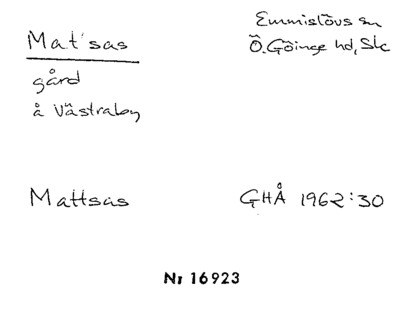 Mat'sas
Emmislövs sn
Ö. Göinge hd, Sk
gård
å Västraby
Mattsas
GHÅ 1962:30
Nr 16923